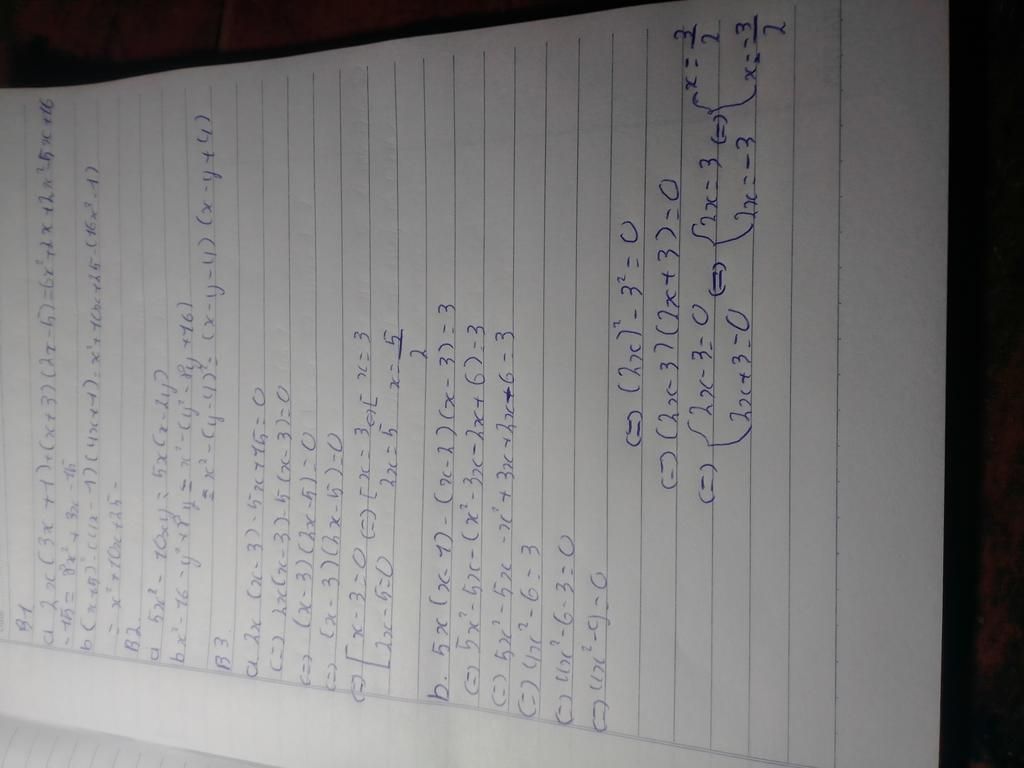 B1
a 2x(3x+1)+(x+3)(2x-5)=6x²+2x+2x²-5x+16
-15= 8x²+3x-15
b (x+5)²-(4x-1)(4x+1)=x²+10x+25-(16x²-1)
= x²+10x+25-
B2
a 5x²-10xy=5x(x-2y)
b x²-16-y²+8y=x²-(y²-8y+16)
=x²-(y-4)²=(x-y-4)(x-y+4)
B3
a 2x(x-3)-5x+15=0
(=) 2x(x-3)-5(x-3)=0
(=) (x-3)(2x-5)=0
(=) (x-3)(2x-5)=0
(=) [x-3=0 (=) [x=3 (=) [x=3
2x-5=0 2x=5 x=5/2
b. 5x(x-1)-(x-2)(x-3)=3
(=) 5x²-5x-(x²-3x-2x+6)=3
(=) 5x²-5x-x²+3x+2x-6=3
(=) 4x²-6=3
(=) 4x²-6-3=0
(=) 4x²-9=0
(=) (2x)²-3²=0
(=) (2x-3)(2x+3)=0
(=) {2x-3=0 (=) {2x=3 (=) {x=3/2
2x+3=0 2x=-3 x=-3/2